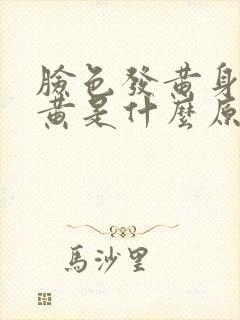 臉色發黃身
黃是什麼原
馬沙里